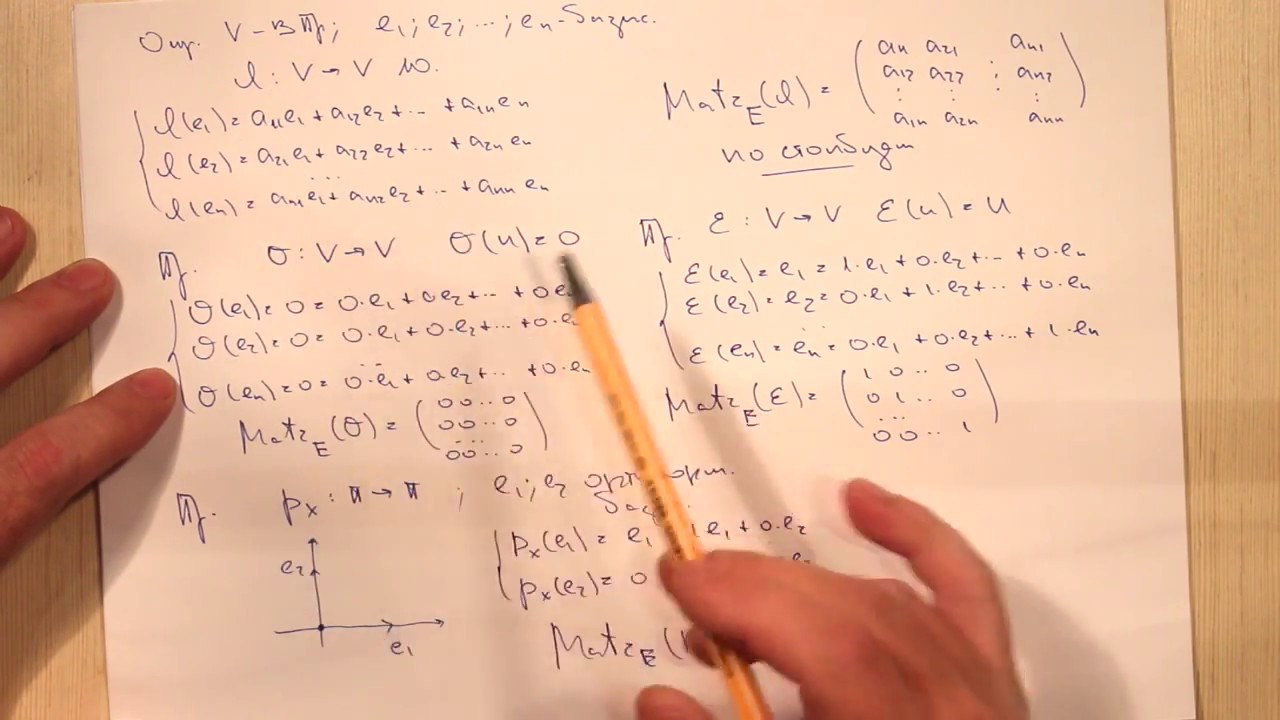 Опр. V – ВПр; e₁; e₂; ...; eₙ – базис.
l : V → V ЛО.
l(e₁) = a₁₁e₁ + a₁₂e₂ + ... + a₁ₙeₙ
l(e₂) = a₂₁e₁ + a₂₂e₂ + ... + a₂ₙeₙ
...
l(eₙ) = aₙ₁e₁ + aₙ₂e₂ + ... + aₙₙeₙ
Matr_E(l) = ( a₁₁ a₂₁ aₙ₁
a₁₂ a₂₂ : aₙ₂
: : · :
a₁ₙ a₂ₙ aₙₙ )
по столбцам
Пр. O : V → V O(u) = 0
O(e₁) = 0 = 0·e₁ + 0e₂ + ... + 0e
O(e₂) = 0 = 0·e₁ + 0·e₂ + ... + 0·e
...
O(eₙ) = 0 = 0·e₁ + 0e₂ + ... + 0·eₙ
Matr_E(O) = ( 0 0 .. 0
0 0 .. 0
...
0 0 .. 0 )
Пр. Ɛ : V → V Ɛ(u) = u
Ɛ(e₁) = e₁ = 1·e₁ + 0·e₂ + ... + 0·eₙ
Ɛ(e₂) = e₂ = 0·e₁ + 1·e₂ + ... + 0·eₙ
...
Ɛ(eₙ) = eₙ = 0·e₁ + 0·e₂ + ... + 1·eₙ
Matr_E(Ɛ) = ( 1 0 .. 0
0 1 .. 0
...
0 0 .. 1 )
Пр. pₓ : π → π ; e₁; e₂
e₂
e₁
pₓ(e₁) = e₁ e₁ + 0·e₂
pₓ(e₂) = 0 e₂
Matr_E(